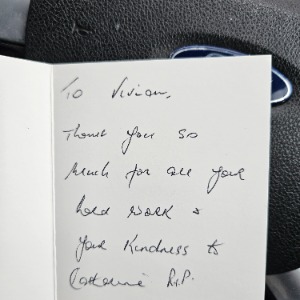 To Vivian,
Thank you so
much for all your
hard work &
your kindness to
Catherine R.I.P.